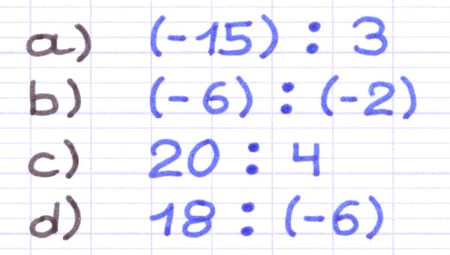 a) (-15) : 3
b) (-6) : (-2)
c) 20 : 4
d) 18 : (-6)